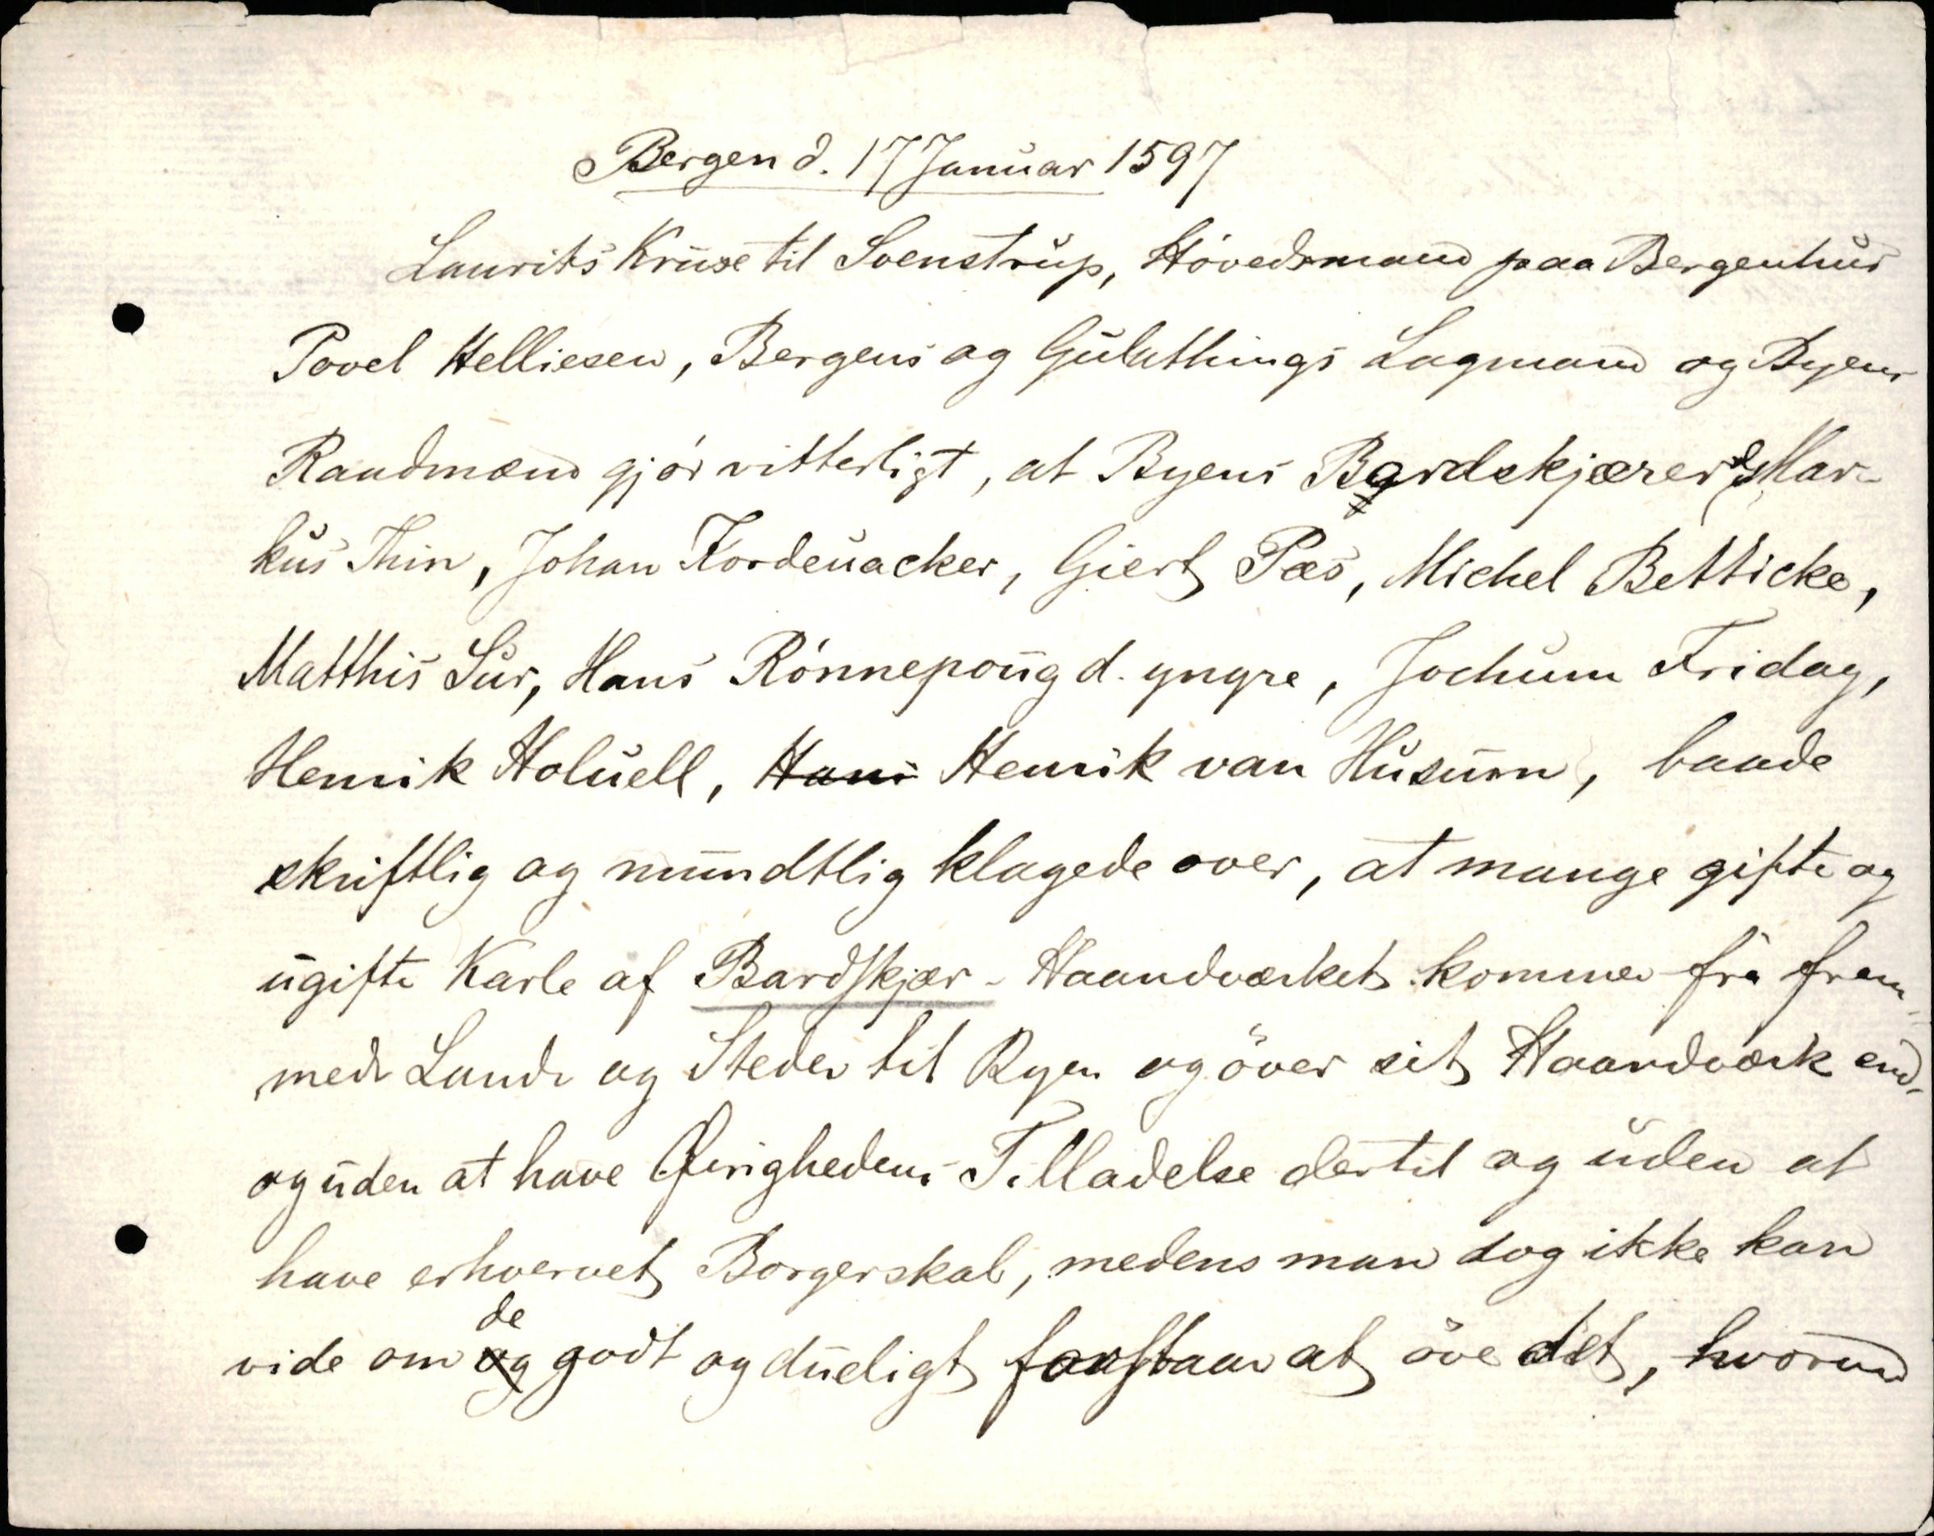 Bergen d. 17 Januar 1597
Laurits Kruse til Svenstrup, Hövedsmand paa Bergenhus
Povel Helliesen, Bergens og Gulathings Lagmand og Byens
Raadmænd gjör vitterligt, at Byens Bardskjærere Mar-
kus Thin, Johan Kordeuacker, Giert Pæs, Michel Betticke,
Matthis Sur, Hans Rönnepoug d. yngre, Jochum Fridag,
Henrik Holuell, Hans Henrik van Husum, baade
skriftlig og mundtlig klagede over, at mange gifte og
ugifte Karle af Bardskjær-Haandværket kommer fra frem-
mede Lande og Steder til Byen og över sit Haandværk end-
og uden at have Øvrighedens Tilladelse dertil og uden at
have erhvervet Borgerskab, medens man dog ikke kan
vide om og de godt og dueligt forstaar at öve det, hvorved